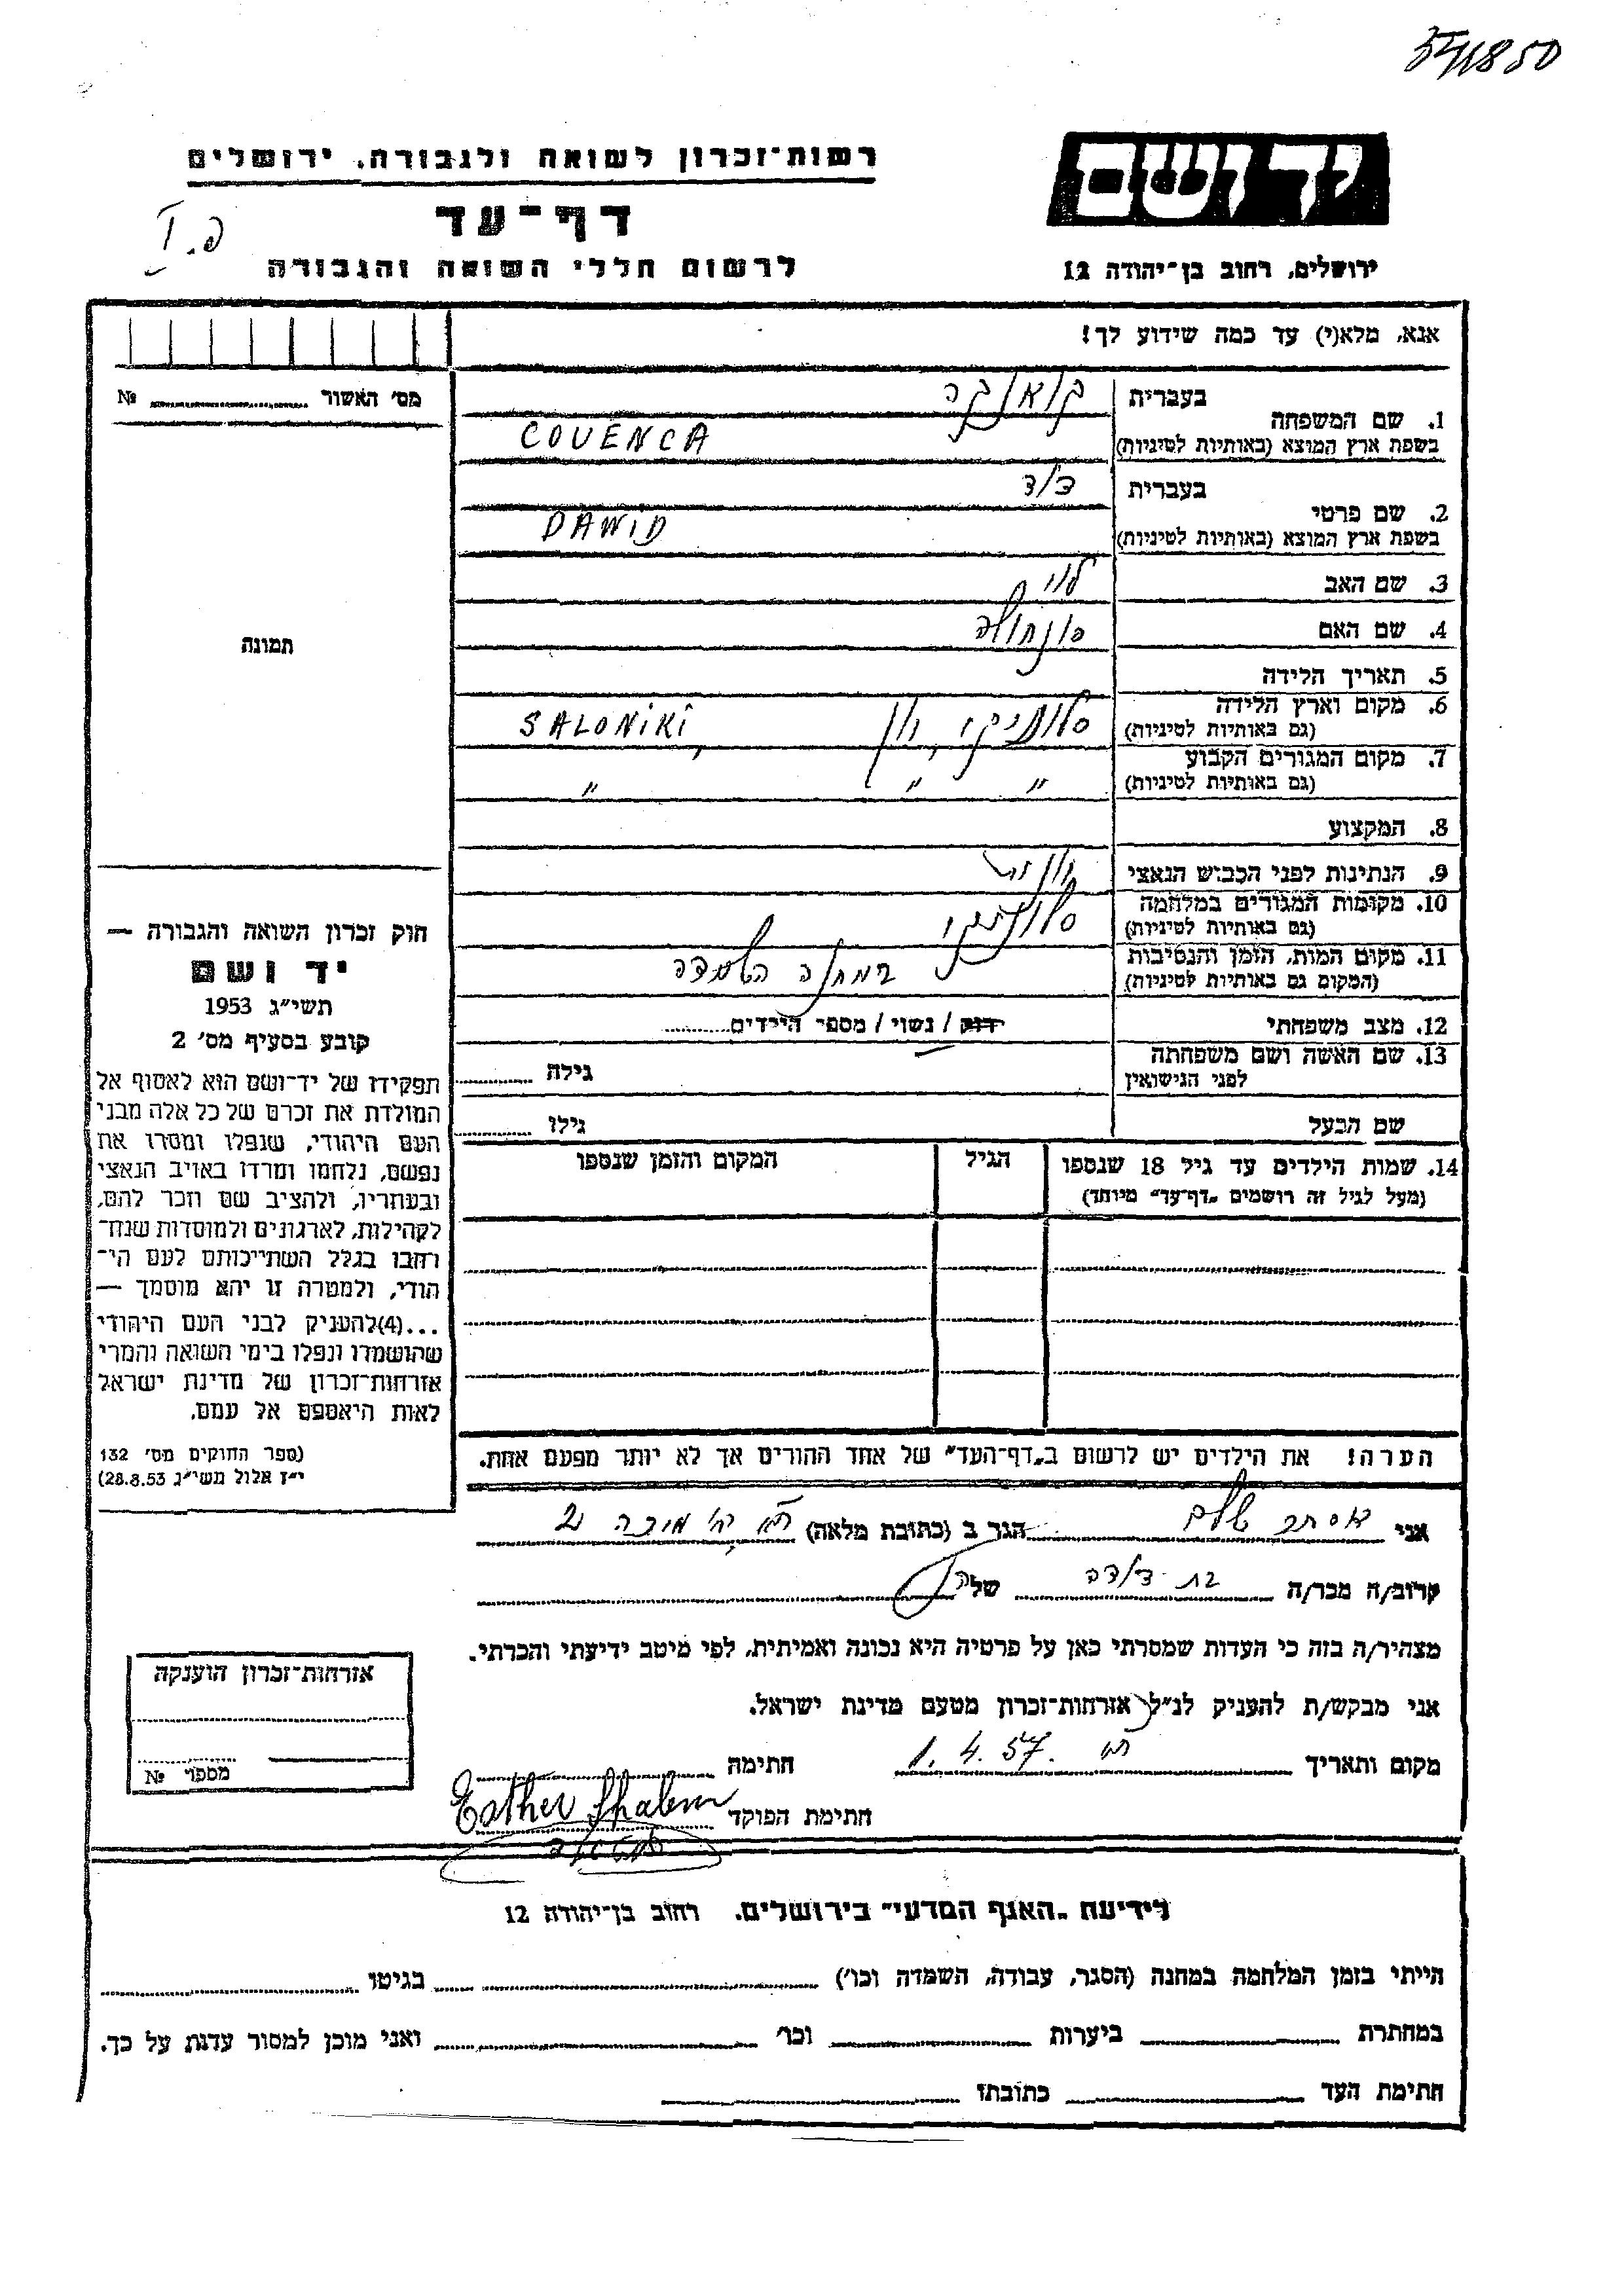 יד ושם
ירושלים, רחוב בן־יהודה 12
רשות־זכרון לשואה ולגבורה, ירושלים
דף־עד
לרשום חללי השואה והגבורה
פ. I
אנא, מלא(י) עד כמה שידוע לך!
מס׳ האשור № 
1. שם המשפחה
בעברית
בשפת ארץ המוצא (באותיות לטיניות)
COVENCA
2. שם פרטי
בעברית דוד
בשפת ארץ המוצא (באותיות לטיניות)
DAWID
3. שם האב לוי
4. שם האם
5. תאריך הלידה
6. מקום וארץ הלידה סלוניקי, יון SALONIKI,
(גם באותיות לטיניות)
7. מקום המגורים הקבוע
(גם באותיות לטיניות) " " "
8. המקצוע
9. הנתינות לפני הכבוש הנאצי
10. מקומות המגורים במלחמה סלוניקי
(גם באותיות לטיניות)
11. מקום המות, הזמן והנסיבות במחנה השמדה
(המקום גם באותיות לטיניות)
12. מצב משפחתי רווק / נשוי / מספר הילדים
13. שם האשה ושם משפחתה
לפני הנישואין גילה
שם הבעל גילו
14. שמות הילדים עד גיל 18 שנספו
(מעל לגיל זה רושמים „דף־עד" מיוחד)
הגיל
המקום והזמן שנספו
הערה! את הילדים יש לרשום ב„דף־העד" של אחד ההורים אך לא יותר מפעם אחת.
תמונה
חוק זכרון השואה והגבורה —
יד ושם
תשי״ג 1953
קובע בסעיף מס׳ 2
תפקידו של יד־ושם הוא לאסוף אל
המולדת את זכרם של כל אלה מבני
העם היהודי, שנפלו ומסרו את
נפשם, נלחמו ומרדו באויב הנאצי
ובעוזריו, ולהציב שם וזכר להם,
לקהילות, לארגונים ולמוסדות שנח־
רבו בגלל השתייכותם לעם הי־
הודי, ולמטרה זו יהא מוסמך —
...(4)להעניק לבני העם היהודי
שהושמדו ונפלו בימי השואה והמרי
אזרחות־זכרון של מדינת ישראל
לאות היאספם אל עמם.
(ספר החוקים מס׳ 132
י״ז אלול תשי״ג 28.8.53)
אני אסתר שלם הגר ב (כתובת מלאה)
קרוב/ה מכר/ה בת דודה של
מצהיר/ה בזה כי העדות שמסרתי כאן על פרטיה היא נכונה ואמיתית, לפי מיטב ידיעתי והכרתי.
אני מבקש/ת להעניק לנ״ל אזרחות־זכרון מטעם מדינת ישראל.
מקום ותאריך 1.4.57 חתימה
חתימת הפוקד Esther Shalem
אזרחות־זכרון הוענקה
מספר №
לידיעת „האגף המדעי" בירושלים. רחוב בן־יהודה 12
הייתי בזמן המלחמה במחנה (הסגר, עבודה, השמדה וכו׳) בגיטו
במחתרת ביערות וכו׳ ואני מוכן למסור עדות על כך.
חתימת העד כתובתו